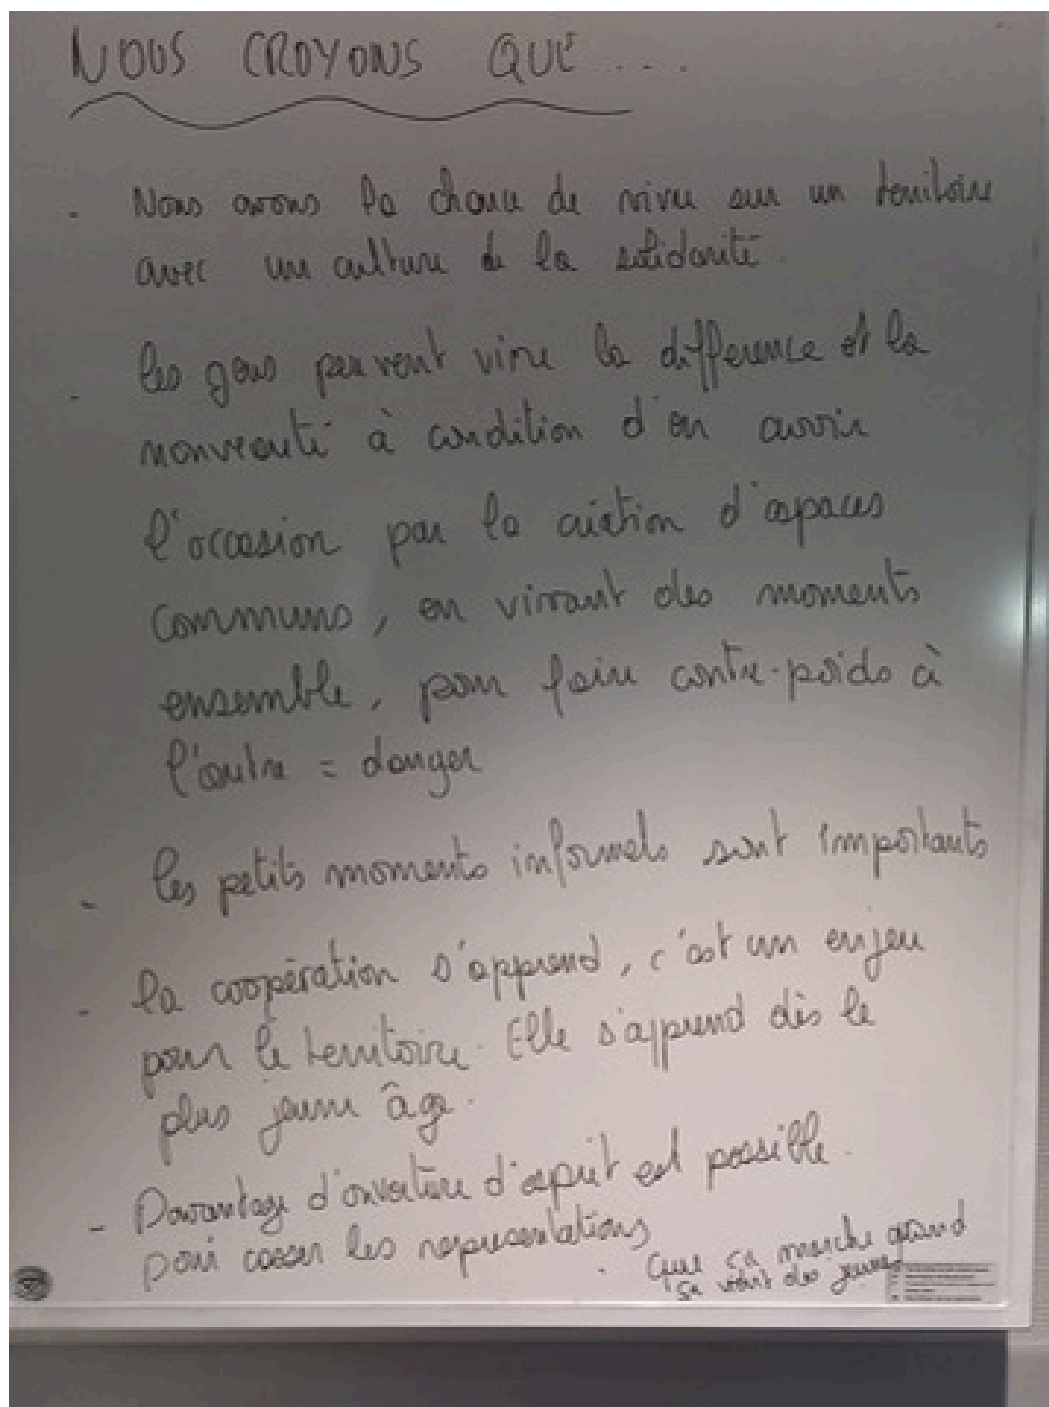 NOUS CROYONS QUE...
- Nous avons la chance de vivre sur un territoire
avec un culture de la solidarité.
- les gens peuvent vivre la différence et la
nouveauté à condition d'en avoir
l'occasion par la création d'espaces
communs, en vivant des moments
ensemble, pour faire contre-poids à
l'autre = danger
- les petits moments informels sont importants
- la coopération s'apprend, c'est un enjeu
pour le territoire. Elle s'apprend dès le
plus jeune âge.
- Davantage d'ouverture d'esprit est possible.
pour casser les représentations
. que ça marche quand
ça vient des jeunes